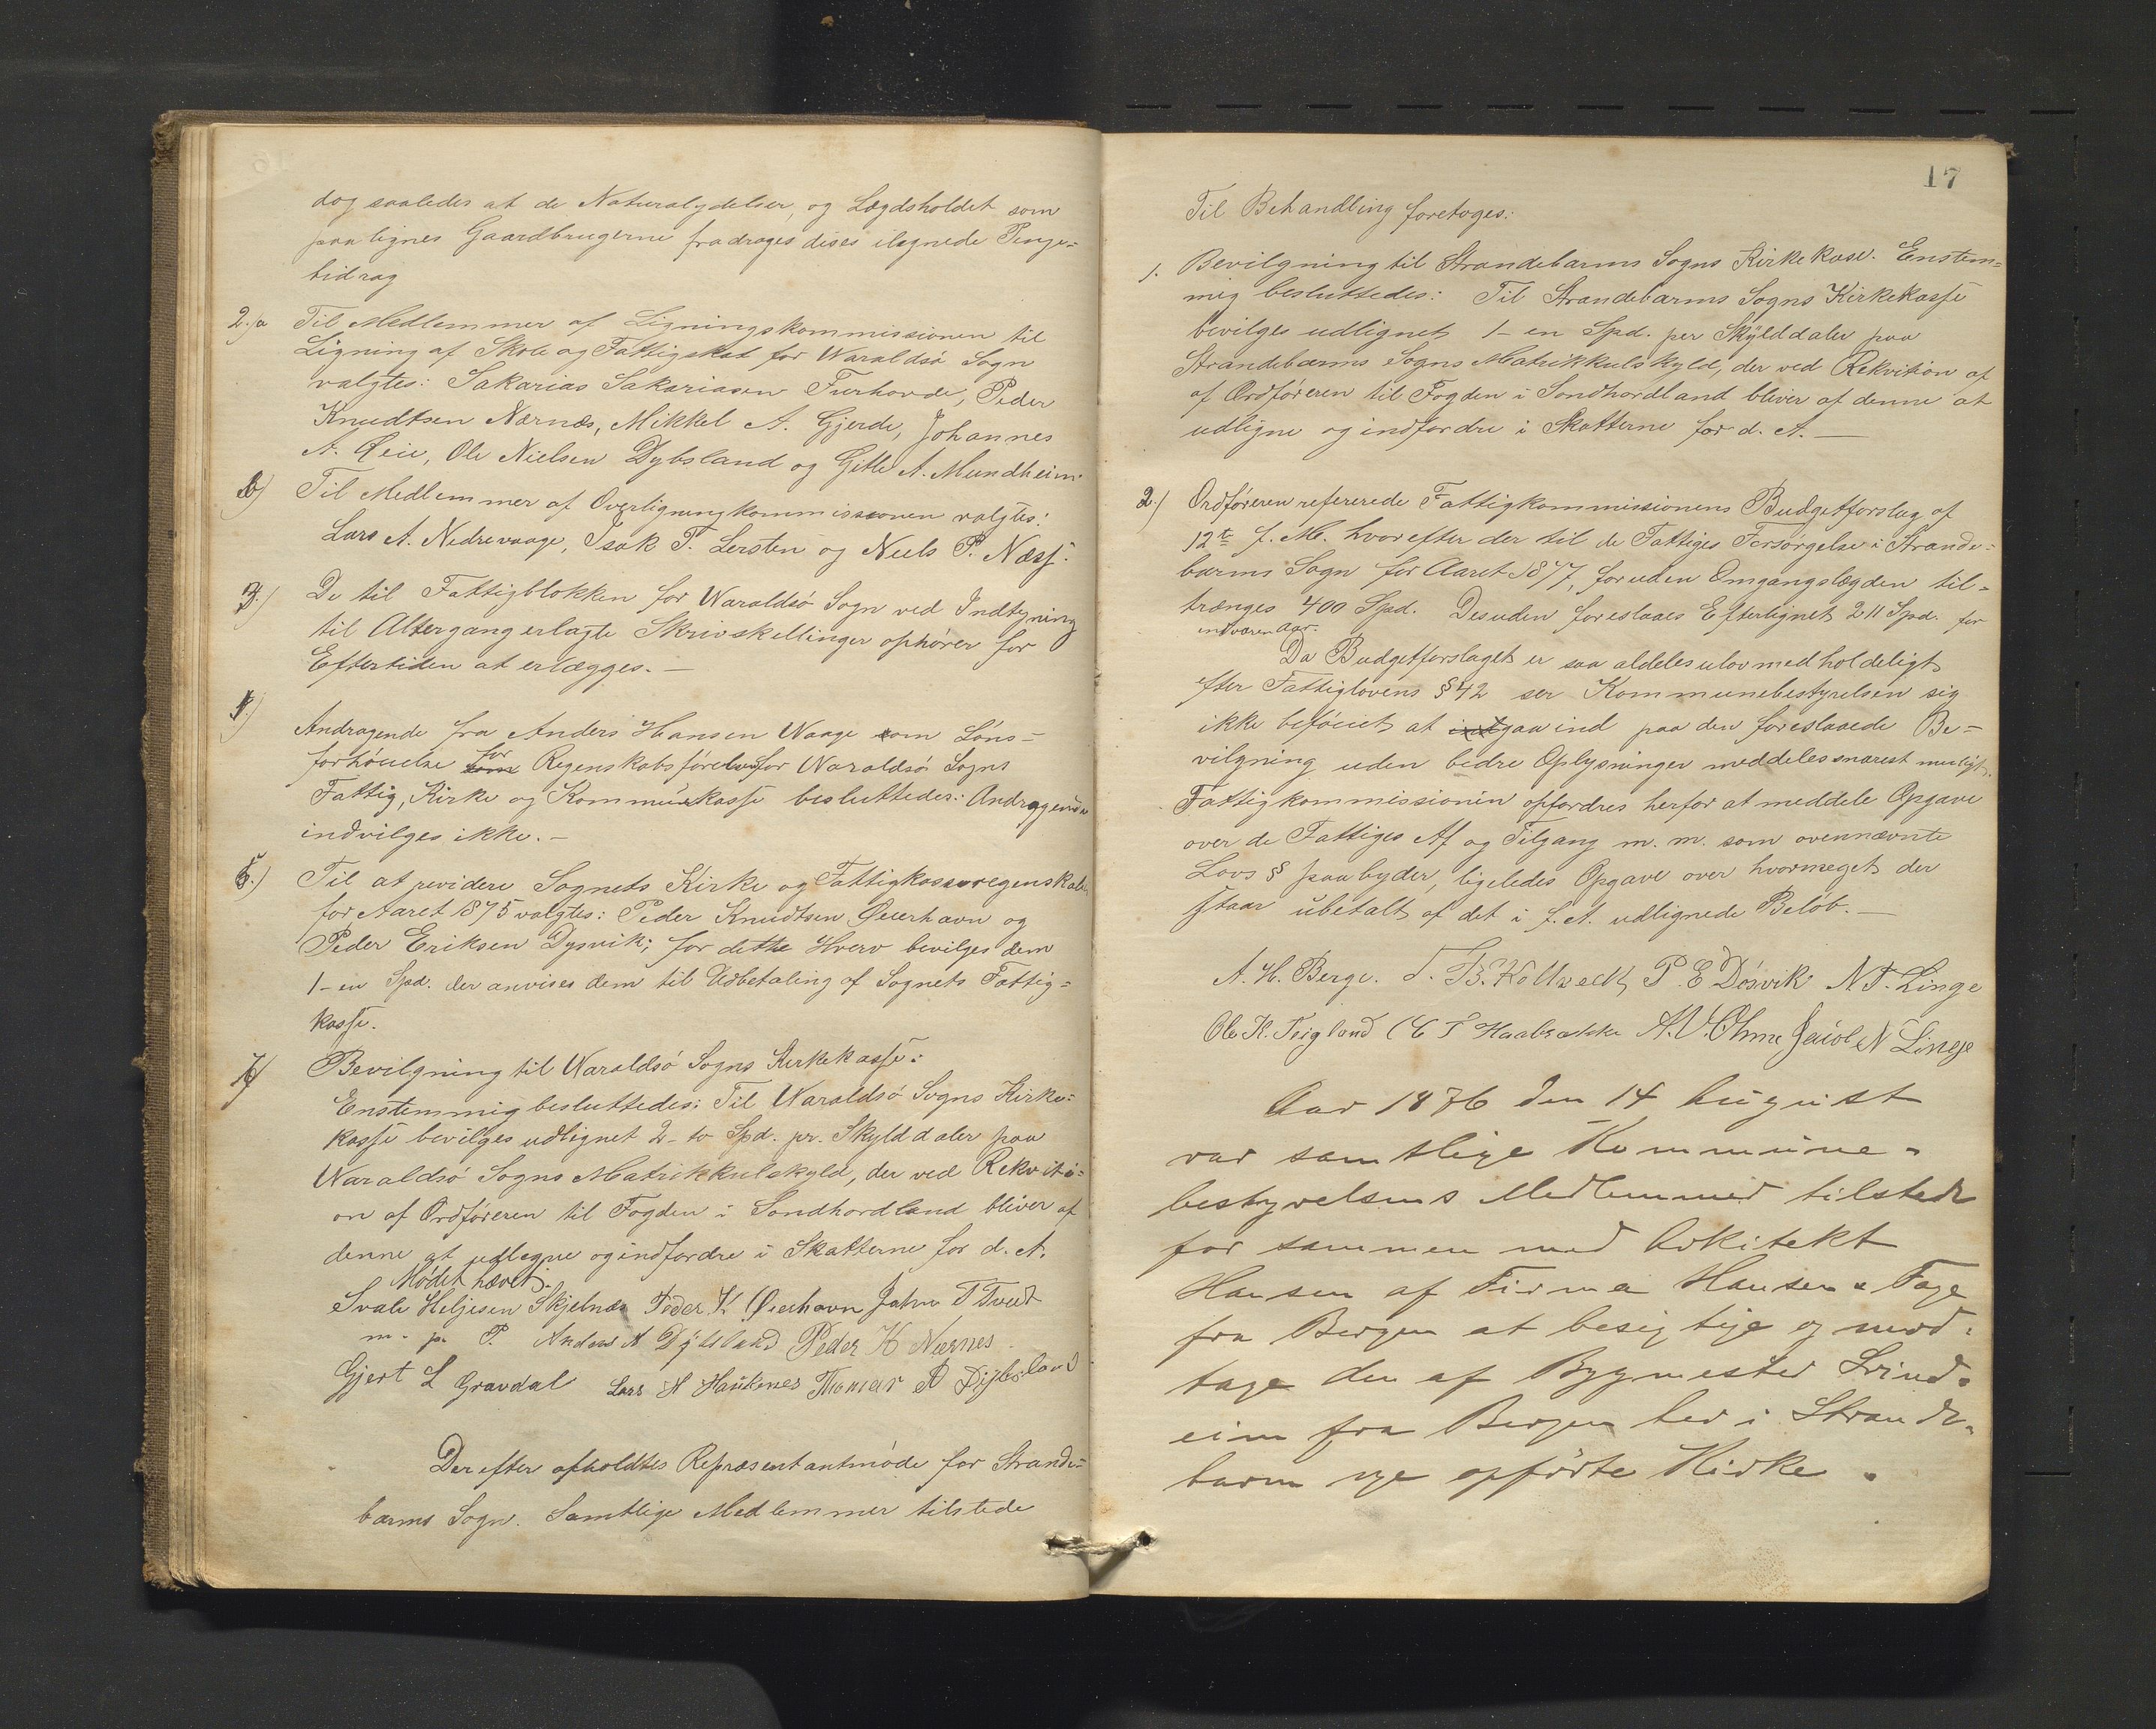 dog saaledes at de Naturalydelser, og Lægdsholdet som
paa lignes Gaardbrugerne fradrages disses ilignede Penge=
bidrag
2./a Til Medlemmer af Ligningskommissionen til
Ligning af Skole og Fattigskat for Waraldsö Sogn
valgtes: Sakarias Sakariasen Furhovde, Peder
Knudtsen Nærnæs, Mikkel A. Gjerde, Johannes
A. Øeie, Ole Nielsen Dybsland og Gitle A. Mundheim.
b) Til Medlemmer af Overligningkommissionen valgtes:
Lars A. Nedrevaage, Isak T. Lersten og Niels P. Næss.
3./) De til Fattigblokken for Waraldsö Sogn ved Indtegning
til Altergang erlagte Skrivskillinger ophører for
Eftertiden at erlægges. —
4/) Andragende fra Anders Hansen Waage om Löns-
forhöielse for Regenskabsförelse for Waraldsö Sogns
Fattig, Kirke og Kommunekasse besluttedes: Andragende
indvilges ikke. —
5./) Til at revidere Sognets Kirke og Fattigkasseregenskab
for Aaret 1875 valgtes: Peder Knudtsen Øierhavn og
Peder Eriksen Dysvik; for dette Hverv bevilges dem
1 - en Spd. der anvises dem til Udbetaling af Sognets Fattig=
kasse.
Bevilgning til Waraldsö Sogns Kirkekasse:
Enstemmig besluttedes: Til Waraldsö Sogns Kirke=
kasse bevilges udlignet 2 - to Spd. pr. Skylddaler paa
Waraldsö Sogns Matrikkulskyld, der ved Rekvisi=
on af Ordföreren til Fogden i Söndhordland bliver af
denne at udligne og indfordre i Skatterne for d. A.
Mödet hævet.
Svale Heljesen Skjelnæs Peder K Øierhavn John T Tveit
m. p. P. Anders A Dybsland Peder K Nærnes
Gjert L Gravdal Lars H Haukenes Thomas A Dybsland
Derefter afholdtes Repræsentantmöde for Strande=
barms Sogn. Samtlige Medlemmer tilstede
17
Til Behandling foretoges:
1. Bevilgning til Strandebarms Sogns Kirkekase. Enstem=
mig besluttedes: Til Strandebarms Sogns Kirkekasse
bevilges udlignet 1 - en Spd. per Skylddaler paa
Strandebarms Sogns Matrikkulskyld, der ved Rekvision af
af Ordföreren til Fogden i Söndhordland bliver af denne at
udligne og indfordre i Skatterne for d. A. —
2./) Ordföreren refererede Fattigkommissionens Budgetforslag af
12te f. M. hvorefter der til de Fattiges Forsörgelse i Strande=
barms Sogn for Aaret 1877, foruden Omgangslægden til-
trænges 400 Spd. Desuden foreslaaes Efterlignet 211 Spd. for
indværen Aar.
Da Budgetforslaget er saa aldeles ulovmedholdeligt
efter Fattiglovens §42 ser Kommunebestyrelsen sig
ikke beföiet at gaa ind paa den foreslaaede Be-
vilgning uden bedre Oplysninger meddeles snarest muligt.
Fattigkommissionen opfordres herfor at meddele Opgave
over de Fattiges Af og Tilgang m. m. som ovennævnte
Lovs § paabyder, ligeledes Opgave over hvormeget der
staar ubetalt af det i f. A. udlignede Belöb. —
A. H. Berge. T. B. Koltvedt, P. E Dösvik N. T. Linge
Ole K. Teigland T Haabrække A. V. Ohme Jacob N Linge
Aar 1876 den 14 August
var samtlige Kommune=
bestyrelsens Medlemmer tilstede
for sammen med Arkitekt
Hansen af Firma Hansen & Faye
fra Bergen at besigtige og mod=
tage den af Bygmester Svind=
eim fra Bergen her i Strande=
barm nye opförte Kirke.